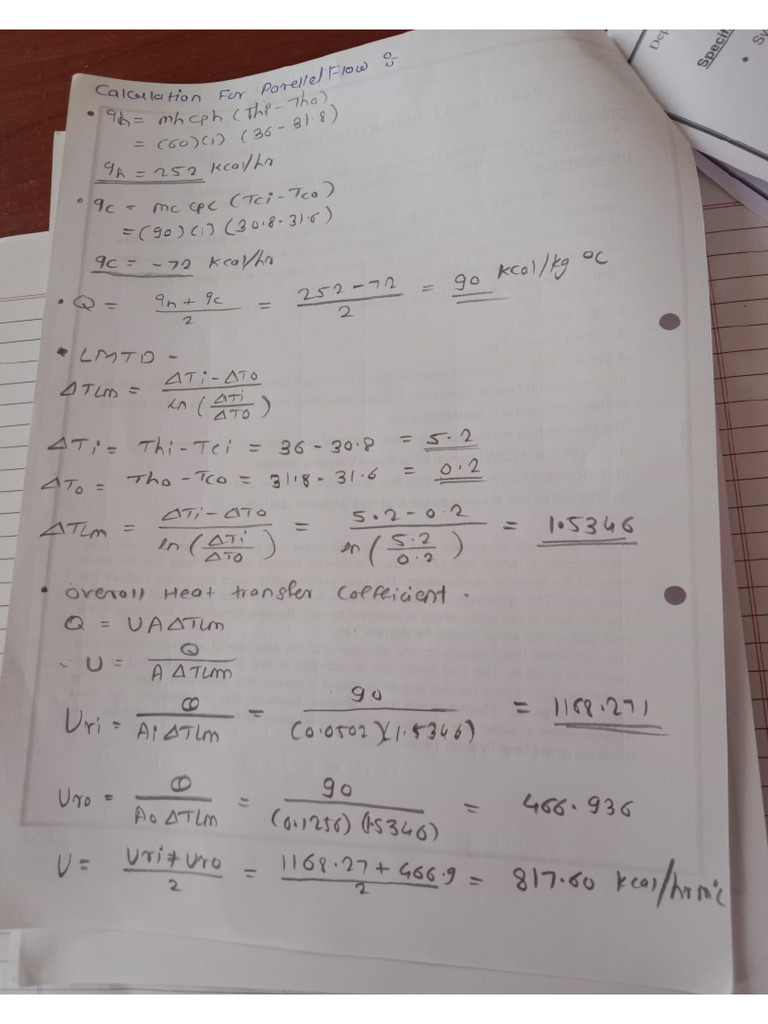 Calculation For Parellel Flow :-
• qh = mh cph (Thi - Tho)
= (60)(1) (36 - 31.8)
qh = 252 kcal/hr
• qc = mc cpc (Tci - Tco)
= (90)(1) (30.8-31.6)
qc = -72 kcal/hr
• Q = qh + qc / 2 = 252-72 / 2 = 90 kcal/kg °C
• LMTD -
ΔTlm = ΔTi - ΔTo / ln (ΔTi / ΔTo)
ΔTi = Thi - Tci = 36 - 30.8 = 5.2
ΔTo = Tho - Tco = 31.8 - 31.6 = 0.2
ΔTLm = ΔTi - ΔTo / ln (ΔTi / ΔTo) = 5.2 - 0.2 / ln (5.2 / 0.2) = 1.5346
• Overall Heat transfer Coefficient .
Q = UAΔTLm
∴ U = Q / A ΔTLm
Uri = Q / Ai ΔTLm = 90 / (0.0502)(1.5346) = 1168.271
Uro = Q / Ao ΔTLm = 90 / (0.1256) (1.5346) = 466.936
U = Uri + Uro / 2 = 1168.27 + 466.9 / 2 = 817.60 kcal/hr m²c
Dep
Specifi
• Sy